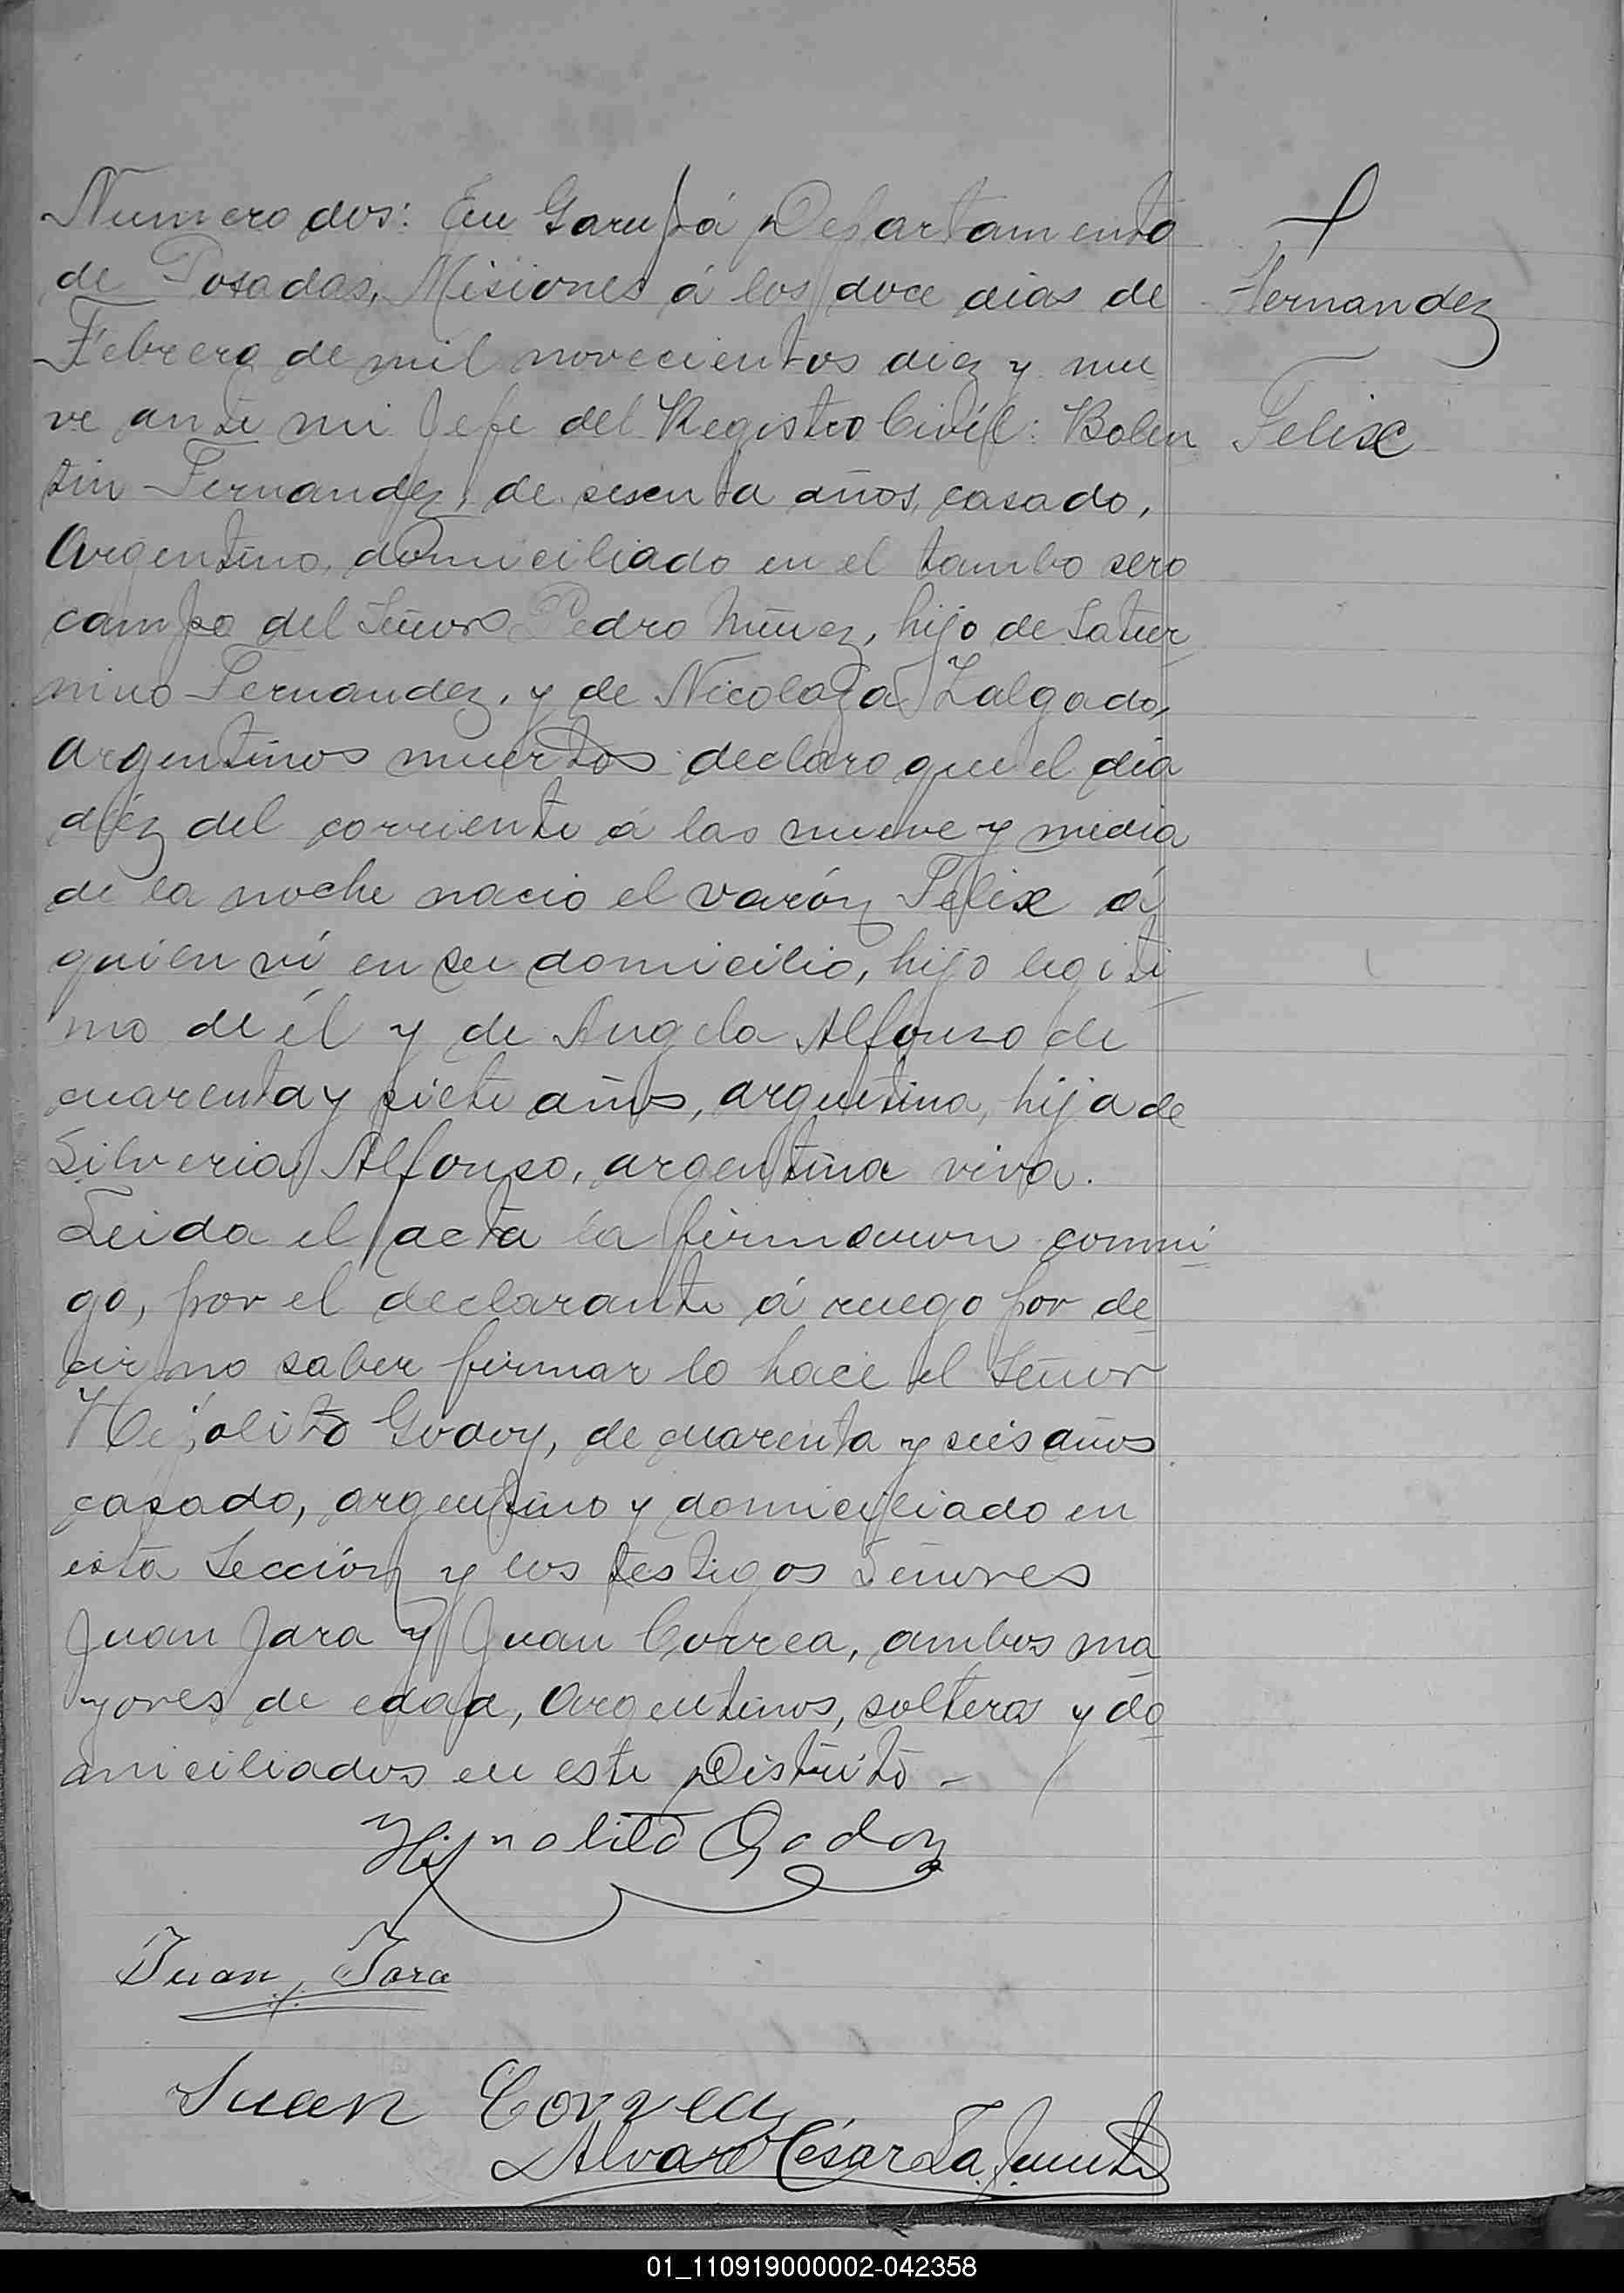 Numero dos: En Garupá Departamento
de Posadas, Misiones á los doce dias de
Febrero de mil novecientos diez y nue
ve ante mi Jefe del Registro Civíl: Bolen
tin Fernandez, de sesenta años, casado,
Argentino, domiciliado en el tambo sero
campo del Señor Pedro Núñez, hijo de Satur
nino Fernandez, y de Nicolaza Zalgado,
argentinos muertos declaro que el dia
diéz del corriente á las nueve y media
de la noche nacio el varón Felix á
quien ví en su domicilio, hijo legiti
mo de él y de Angela Alfonso de
cuarenta y siete años, argentina, hija de
Silveria Alfonso, argentina viva.
Leida el acta la firmaron conmi
go, por el declarante á ruego por de
cir no saber firmar lo hace el Señor
Hipólito Godoy, de cuarenta y seis años
casado, argentino y domiciliado en
esta Sección y los testigos Señores
Juan Jara y Juan Correa, ambos ma
yores de edad, Argentinos, solteros y do
miciliados en este Distrito -
Hipolito Godoy
Juan Jara
Juan Correa
Alvaro César La Fuente
Fernandez
Felix
01_110919000002-042358